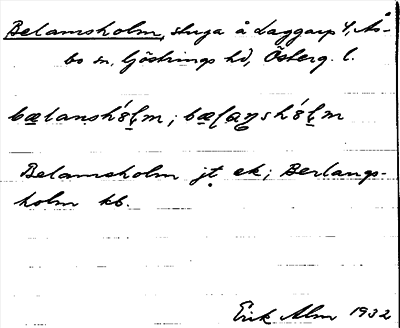 Belamsholm, stuga å Laggarp 4, Ås-
bo sn, Göstrings hd, Österg. l.
bælanshól̥m; bælaŋshól̥m
Belamsholm jt. ek; Berlangs-
holm kb.
Erik Alm 1932